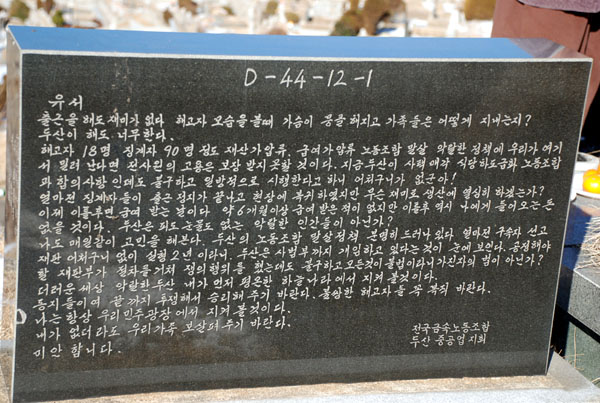 D-44-12-1
유서
출근을 해도 재미가 없다 해고자 모습을 볼때 가슴이 뭉클해지고 가족들은 어떻게 지내는지?
두산이 해도 너무한다.
해고자 18명 징계자 90명 정도 재산가압류, 급여가압류 노동조합 말살 악랄한 정책에 우리가 여기
서 밀려 난다면 전사원의 고용은 보장 받지 못할 것이다. 지금 두산이 사택매각 식당하도급화 노동조합
과 합의사항 인데도 불구하고 일방적으로 시행한다고 하니 어처구니가 없군아!
얼마전 징계자들이 출근 정지가 끝나고 현장에 복귀 하였지만 무슨 재미로 생산에 열심히 하겠는가?
이제 이틀후면 급여 받는 날이다 약 6개월이상 급여 받은 적이 없지만 이틀후 역시 나에게 들어오는 돈
없을 것이다. 두산은 피도 눈물도 없는 악랄한 인간들이 아닌가?
나도 매일같이 고민을 해본다. 두산의 노동조합 말살정책 분명히 드러나 있다 얼마전 구속자 선고
재판 어처구니 없이 실형 2년 이라니. 두산은 사법부까지 개입하고 있다는 것이 눈에 보인다. 공정해야
할 재판부가 절차를 거쳐 정의행위를 했는데도 불구하고 모든것이 불법이라니 가진자의 법이 아닌가?
더러운 세상 악랄한 두산 내가 먼저 평온한 하늘나라에서 지켜 볼것이다.
동지들이여 끝까지 투쟁해서 승리해 주기 바란다. 불쌍한 해고자들 꼭 복직 바란다.
나는 항상 우리 민주광장에서 지켜 볼 것이다.
내가 없더라도 우리가족 보살펴 주기 바란다.
미안 합니다.
전국금속노동조합
두산 중공업 지회